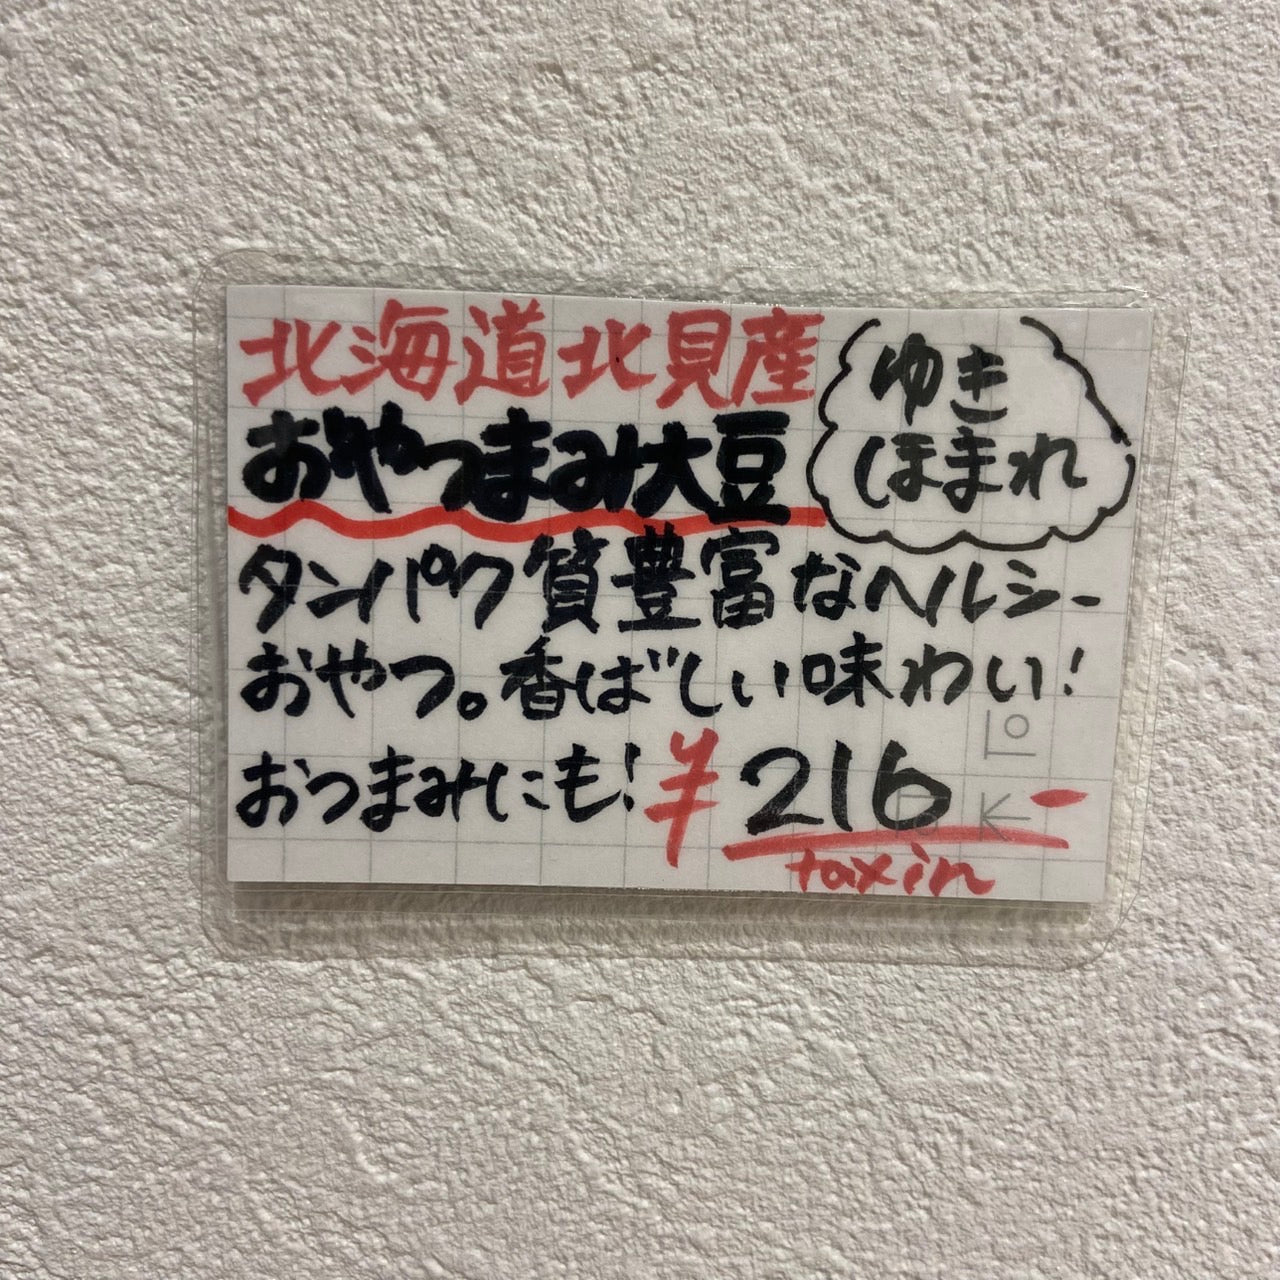 北海道北見産
おやつまみ大豆
ゆき
ほまれ
タンパク質豊富なヘルシー
おやつ。香ばしい味わい!
おつまみにも!¥216-
taxin